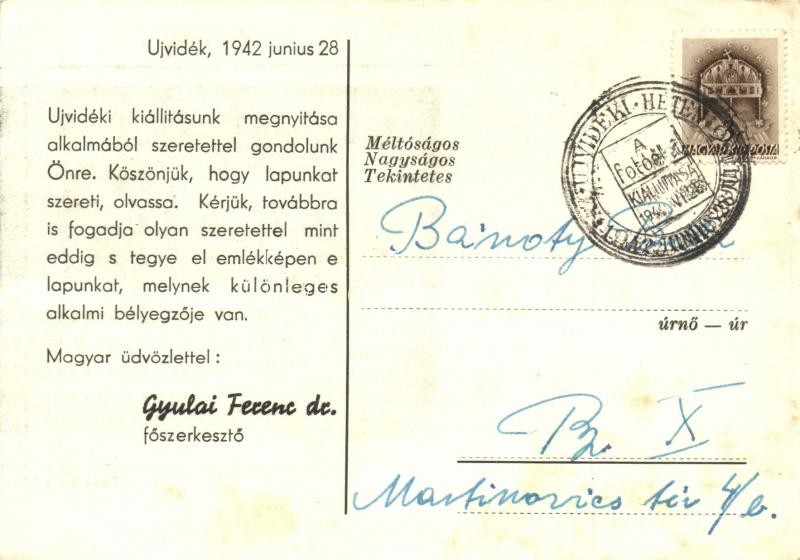 Ujvidék, 1942 junius 28
Ujvidéki kiállitásunk megnyitása
alkalmából szeretettel gondolunk
Önre. Köszönjük, hogy lapunkat
szereti, olvassa. Kérjük, továbbra
is fogadja olyan szeretettel mint
eddig s tegye el emlékképen e
lapunkat, melynek különleges
alkalmi bélyegzője van.
Magyar üdvözlettel :
Gyulai Ferenc dr.
főszerkesztő
UJVIDÉKI HETEN
A
KIÁLLITÁSA
MAGYAR KIR. POSTA
Méltóságos
Nagyságos
Tekintetes
Bánoty
úrnő — úr
Bp. X
Martinovics tér 4/b.